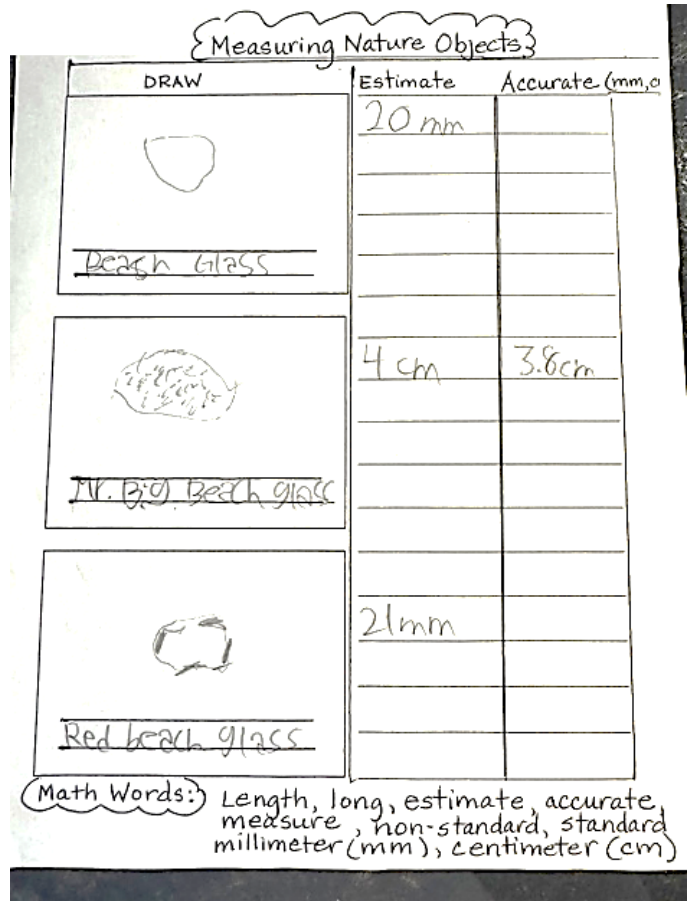 Measuring Nature Objects
DRAW Estimate Accurate (mm,c
20 mm
Beach Glass
4 cm 3.8cm
Mr. Big Beach glass
21mm
Red beach glass
Math Words: Length, long, estimate, accurate,
measure, non-standard, standard
millimeter (mm), centimeter (cm)